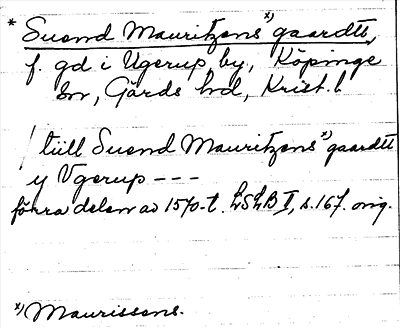 * Suend Mauritzens x) gaardtt,
f. gd i Ugerup by, Köpinge
sn, Gärds hd, Krist. l
/ tiill Suend Mauritzens x) gaardtt
y Vgerup ---
förra delen av 1570-t. LSLB I, s. 167. orig.
x) Maurissens.